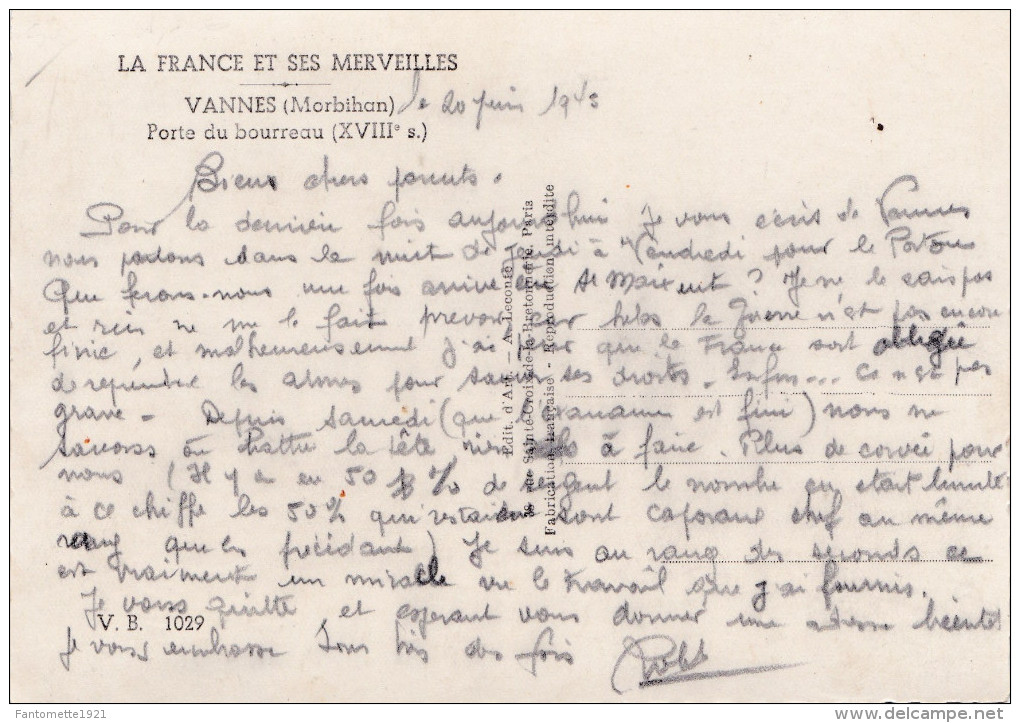 LA FRANCE ET SES MERVEILLES
VANNES (Morbihan) le 20 juin 1945
Porte du bourreau (XVIIIe s.)
Biens chers parents.
Pour la dernière fois aujourd'hui Je vous écrit de Vannes
nous partons dans la nuit de Jeudi à Vendredi pour le Patou
Que ferons-nous une fois arrivé à St Maixent ? Je ne le sais pas
et rien ne me le fait prevoir car helas la Guerre n'est pas encore
finie, et malheureusement j'ai peur que la France soit obligée
de reprendre les armes pour sauver ses droits. Enfin... Ce n'est pas
grave - Depuis Samedi (que l'examain est fini) nous ne
savons où battre la tête, rien à faire. Plus de corvée pour
nous (Il y a eu 50 % de sergent le nombre en était limité
à ce chiffre les 50% qui restaient sont caporaux chef au même
rang que les précédant) Je suis au rang des seconds ce
est vraiment un miracle vu le travail que j'ai fournis.
Je vous quitte et esperant vous donner une adresse bientot
V. B. 1029
Je vous embrasse tous très des fois Robt
Edit. d'Art. — A. Leconte
38, rue Sainte-Croix-de-la-Bretonnerie, Paris
Fabrication française - Reproduction interdite
© Fantomette1921
delcampe.net